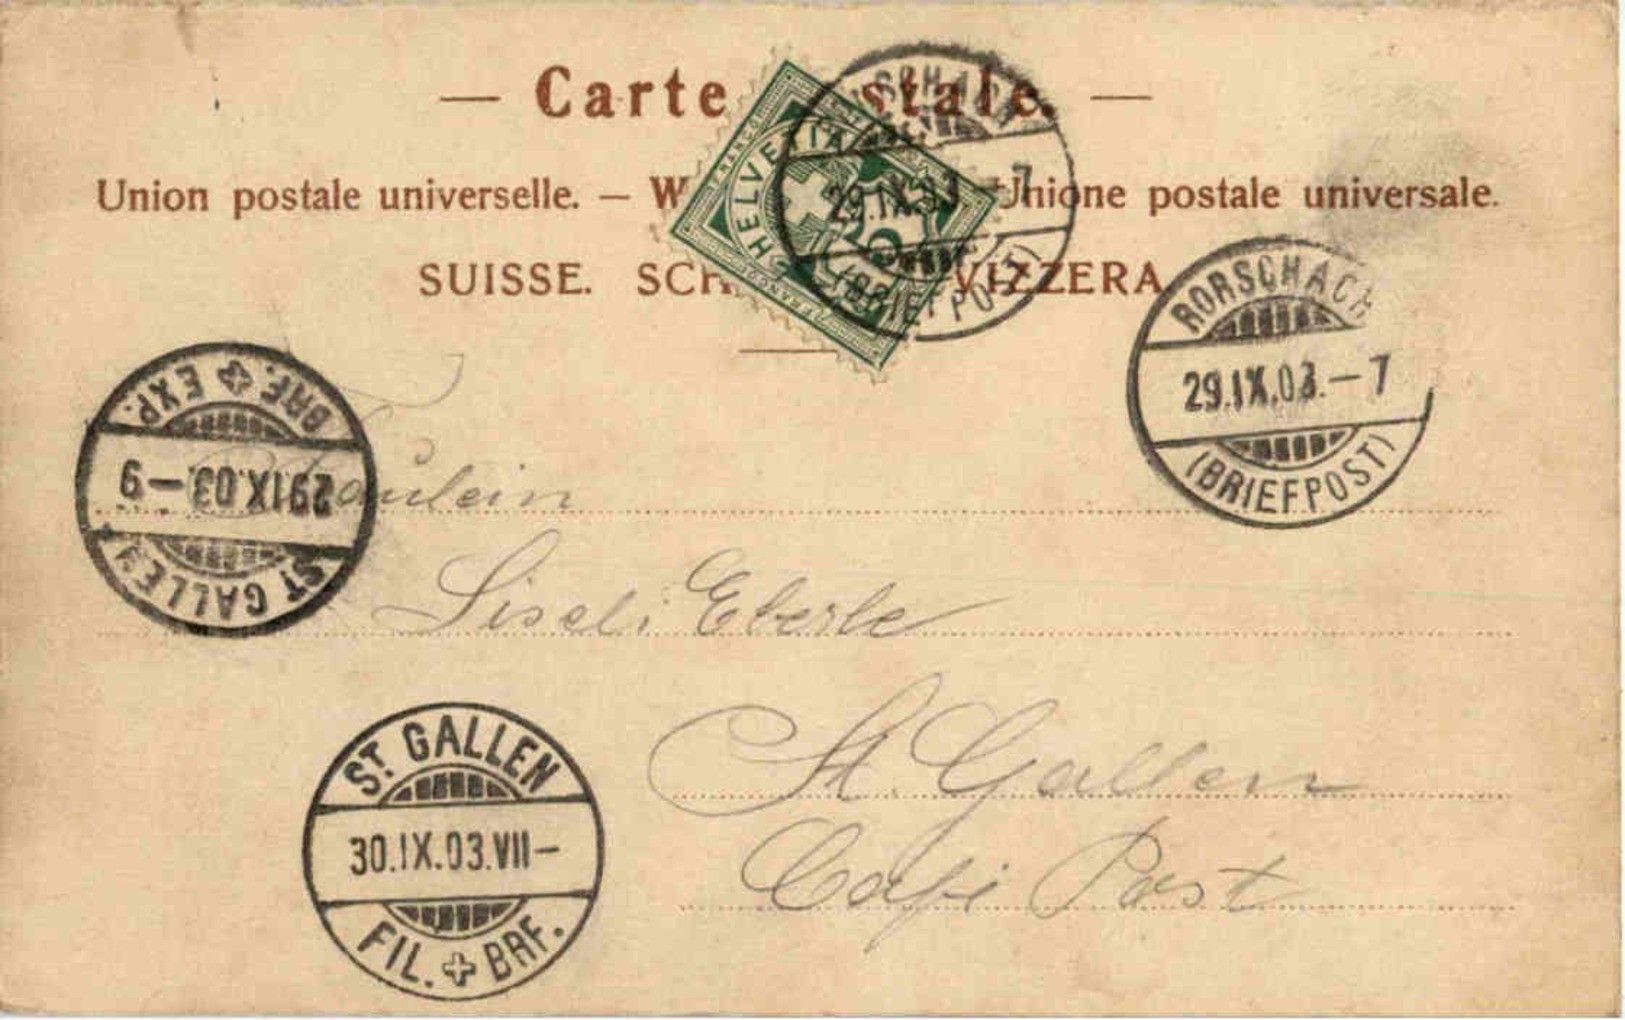 — Carte stale. —
Union postale universelle. — W Unione postale universale.
SUISSE. SCH VIZZERA
HELVETIA
FRANCO
5
RORSCHACH
29.IX.03.–7
(BRIEFPOST)
RORSCHACH
29.IX.03.–7
(BRIEFPOST)
ST. GALLEN
29.IX.03.–9
BRF. + EXP.
Fräulein
Liseli Eberle
St. Gallen
Café Post
ST. GALLEN
30.IX.03.VII–
FIL. + BRF.